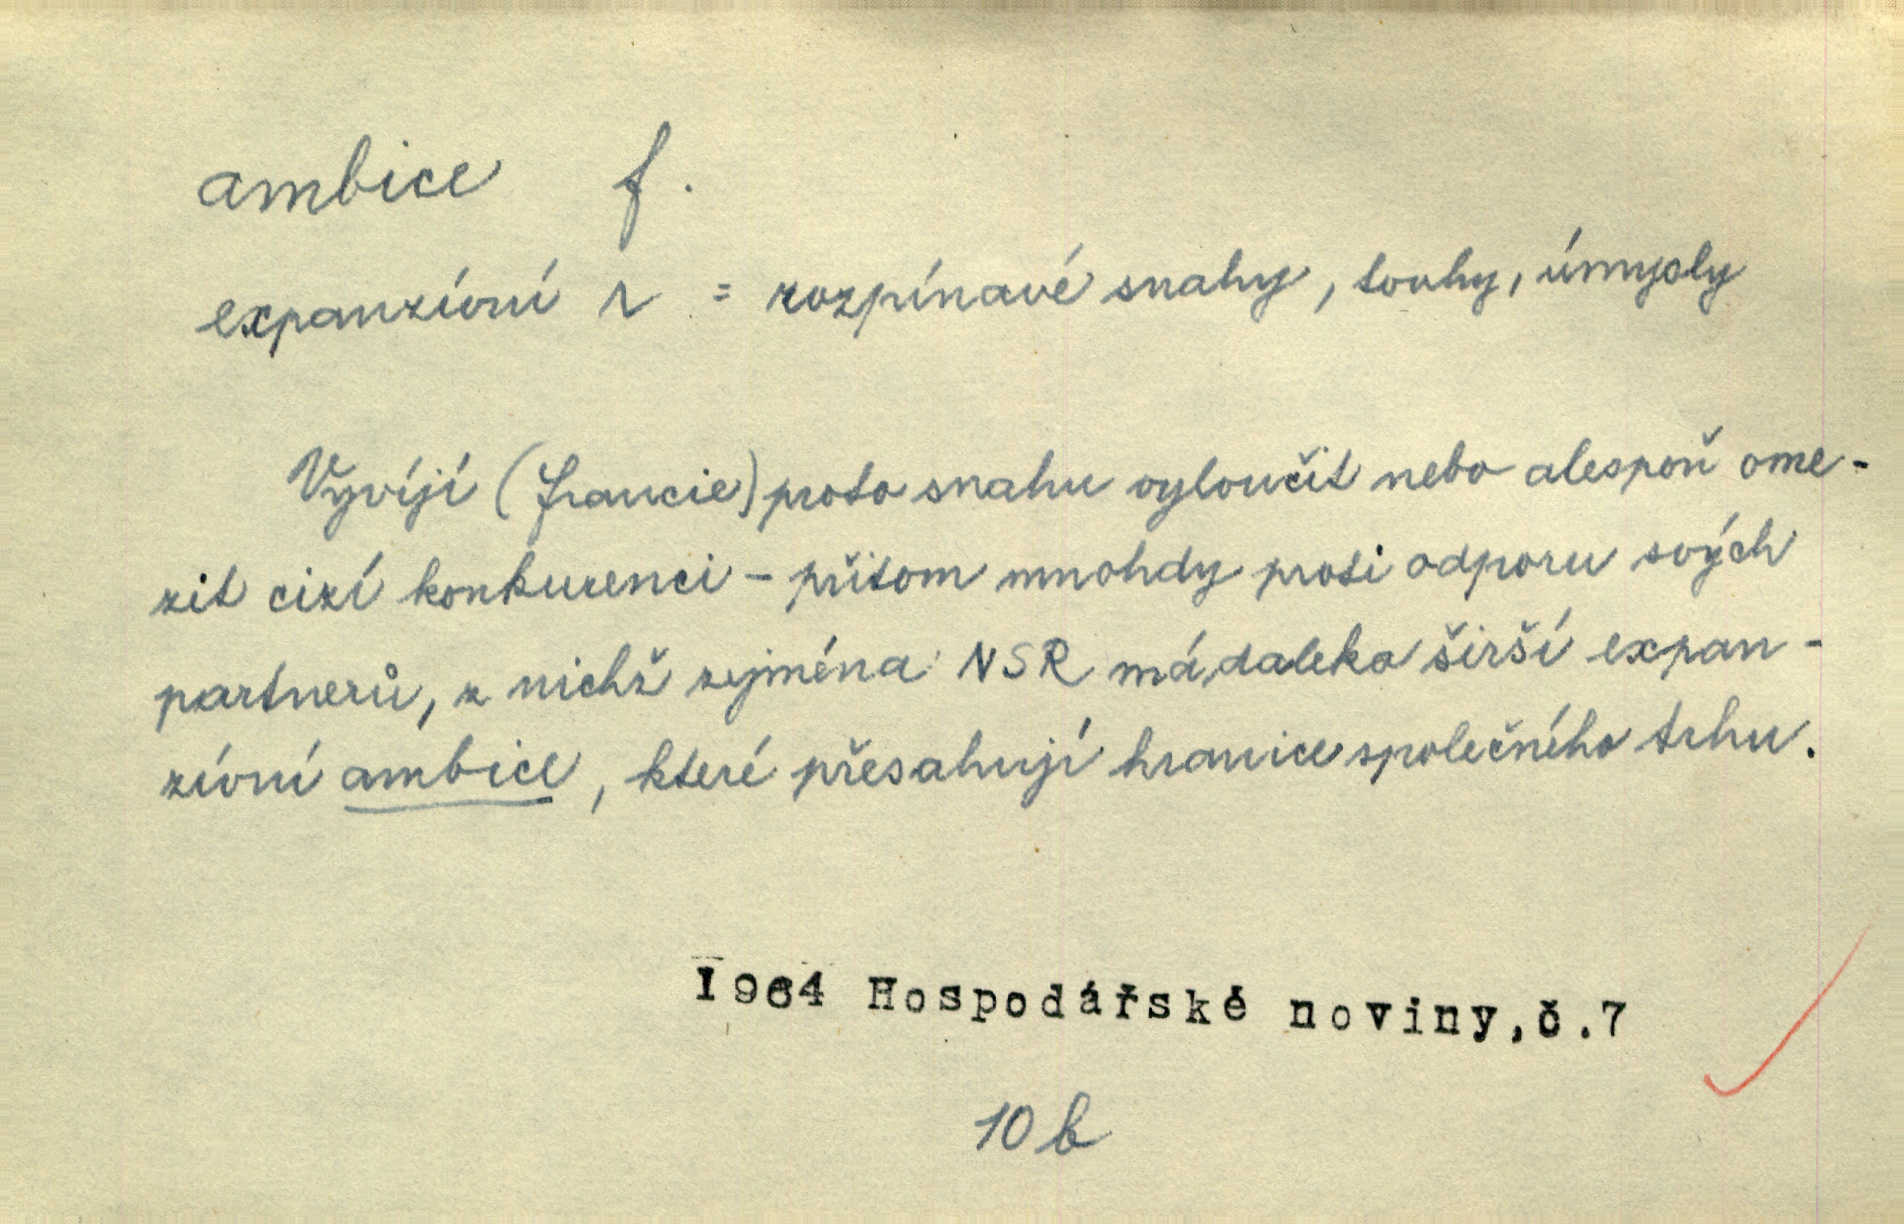 ambice f.
expanzívní ~ = rozpínavé snahy, touhy, úmysly
Vyvíjí (francie) proto snahu vyloučit nebo alespoň ome-
zit cizí konkurenci - přitom mnohdy proti odporu svých
partnerů, z nichž zejména NSR má daleko širší expan-
zívní ambice, které přesahují hranice společného trhu.
1964 Hospodářské noviny,č.7
10 b